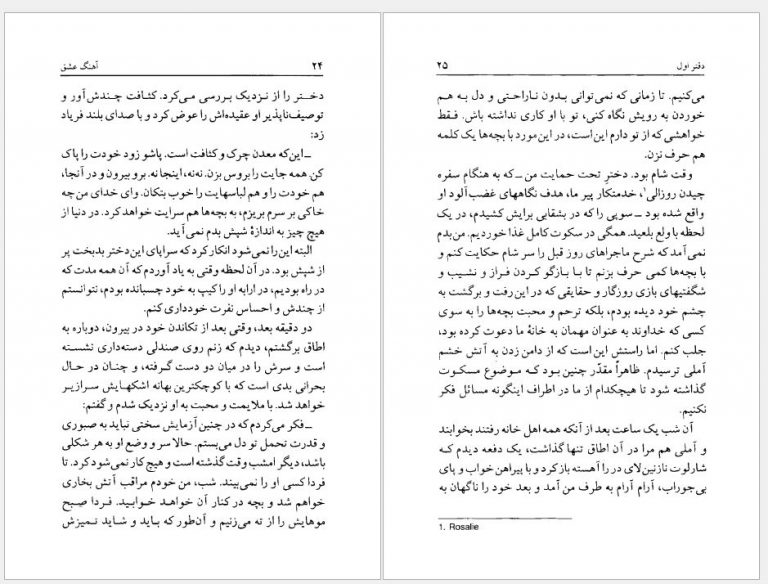 ۲۴ آهنگ عشق
دختر را از نزدیک بررسی می‌کرد. کثافت چندش‌آور و
توصیف‌ناپذیر او عقیده‌اش را عوض کرد و با صدای بلند فریاد
زد:
ــ این‌که معدن چرک و کثافت است. پاشو زود خودت را پاک
کن. همه جایت را بروس بزن. نه‌نه، اینجا نه. برو بیرون و در آنجا،
هم خودت را و هم لباسهایت را خوب بتکان. وای خدای من چه
خاکی بر سرم بریزم، به بچه‌ها هم سرایت خواهد کرد. در دنیا از
هیچ چیز به اندازهٔ شپش بدم نمی‌آید.
البته این را نمی‌شود انکار کرد که سراپای این دختر بدبخت پر
از شپش بود. در آن لحظه وقتی به یاد آوردم که آن همه مدت که
در راه بودیم، در ارابه او را کیپ به خود چسبانده بودم، نتوانستم
از چندش و احساس نفرت خودداری کنم.
دو دقیقه بعد، وقتی بعد از تکاندن خود در بیرون، دوباره به
اطاق برگشتم، دیدم که زنم روی صندلی دسته‌داری نشسته
است و سرش را در میان دو دست گرفته، و چنان در حال
بحرانی بدی است که با کوچکترین بهانه اشکهایش سرازیر
خواهد شد. با ملایمت و محبت به او نزدیک شدم و گفتم:
ــ فکر می‌کردم که در چنین آزمایش سختی نباید به صبوری
و قدرت تحمل تو دل می‌بستم. حالا سر و وضع او به هر شکلی
باشد، دیگر امشب وقت گذشته است و هیچ کار نمی‌شود کرد. تا
فردا کسی او را نمی‌بیند. شب، من خودم مراقب آتش بخاری
خواهم شد و بچه در کنار آن خواهد خوابید. فردا صبح
موهایش را از ته می‌زنیم و آن‌طور که باید و شاید تمیزش
دفتر اول ۲۵
می‌کنیم. تا زمانی که نمی‌توانی بدون ناراحتی و دل به هم
خوردن به رویش نگاه کنی، تو با او کاری نداشته باش. فقط
خواهشی که از تو دارم این است، در این مورد با بچه‌ها یک کلمه
هم حرف نزن.
وقت شام بود. دختر تحت حمایت من ــ که به هنگام سفره
چیدن روزالی۱، خدمتکار پیر ما، هدف نگاههای غضب‌آلود او
واقع شده بود ــ سوپی را که در بشقابی برایش کشیدم، در یک
لحظه با ولع بلعید. همگی در سکوت کامل غذا خوردیم. من بدم
نمی‌آمد که شرح ماجراهای روز قبل را سر شام حکایت کنم و
با بچه‌ها کمی حرف بزنم تا با بازگو کردن فراز و نشیب و
شگفتیهای بازی روزگار و حقایقی که در این رفت و برگشت به
چشم خود دیده بودم، بلکه ترحم و محبت بچه‌ها را به سوی
کسی که خداوند به عنوان مهمان به خانهٔ ما دعوت کرده بود،
جلب کنم. اما راستش این است که از دامن زدن به آتش خشم
آملی ترسیدم. ظاهراً مقدّر چنین بود که موضوع مسکوت
گذاشته شود تا هیچکدام از ما در اطراف اینگونه مسائل فکر
نکنیم.
آن شب یک ساعت بعد از آنکه همه اهل خانه رفتند بخوابند
و آملی هم مرا در آن اطاق تنها گذاشت، یک دفعه دیدم که
شارلوت نازنین لای در را آهسته باز کرد و با پیراهن خواب و پای
بی‌جوراب، آرام آرام به طرف من آمد و بعد خود را ناگهان به
1. Rosalie